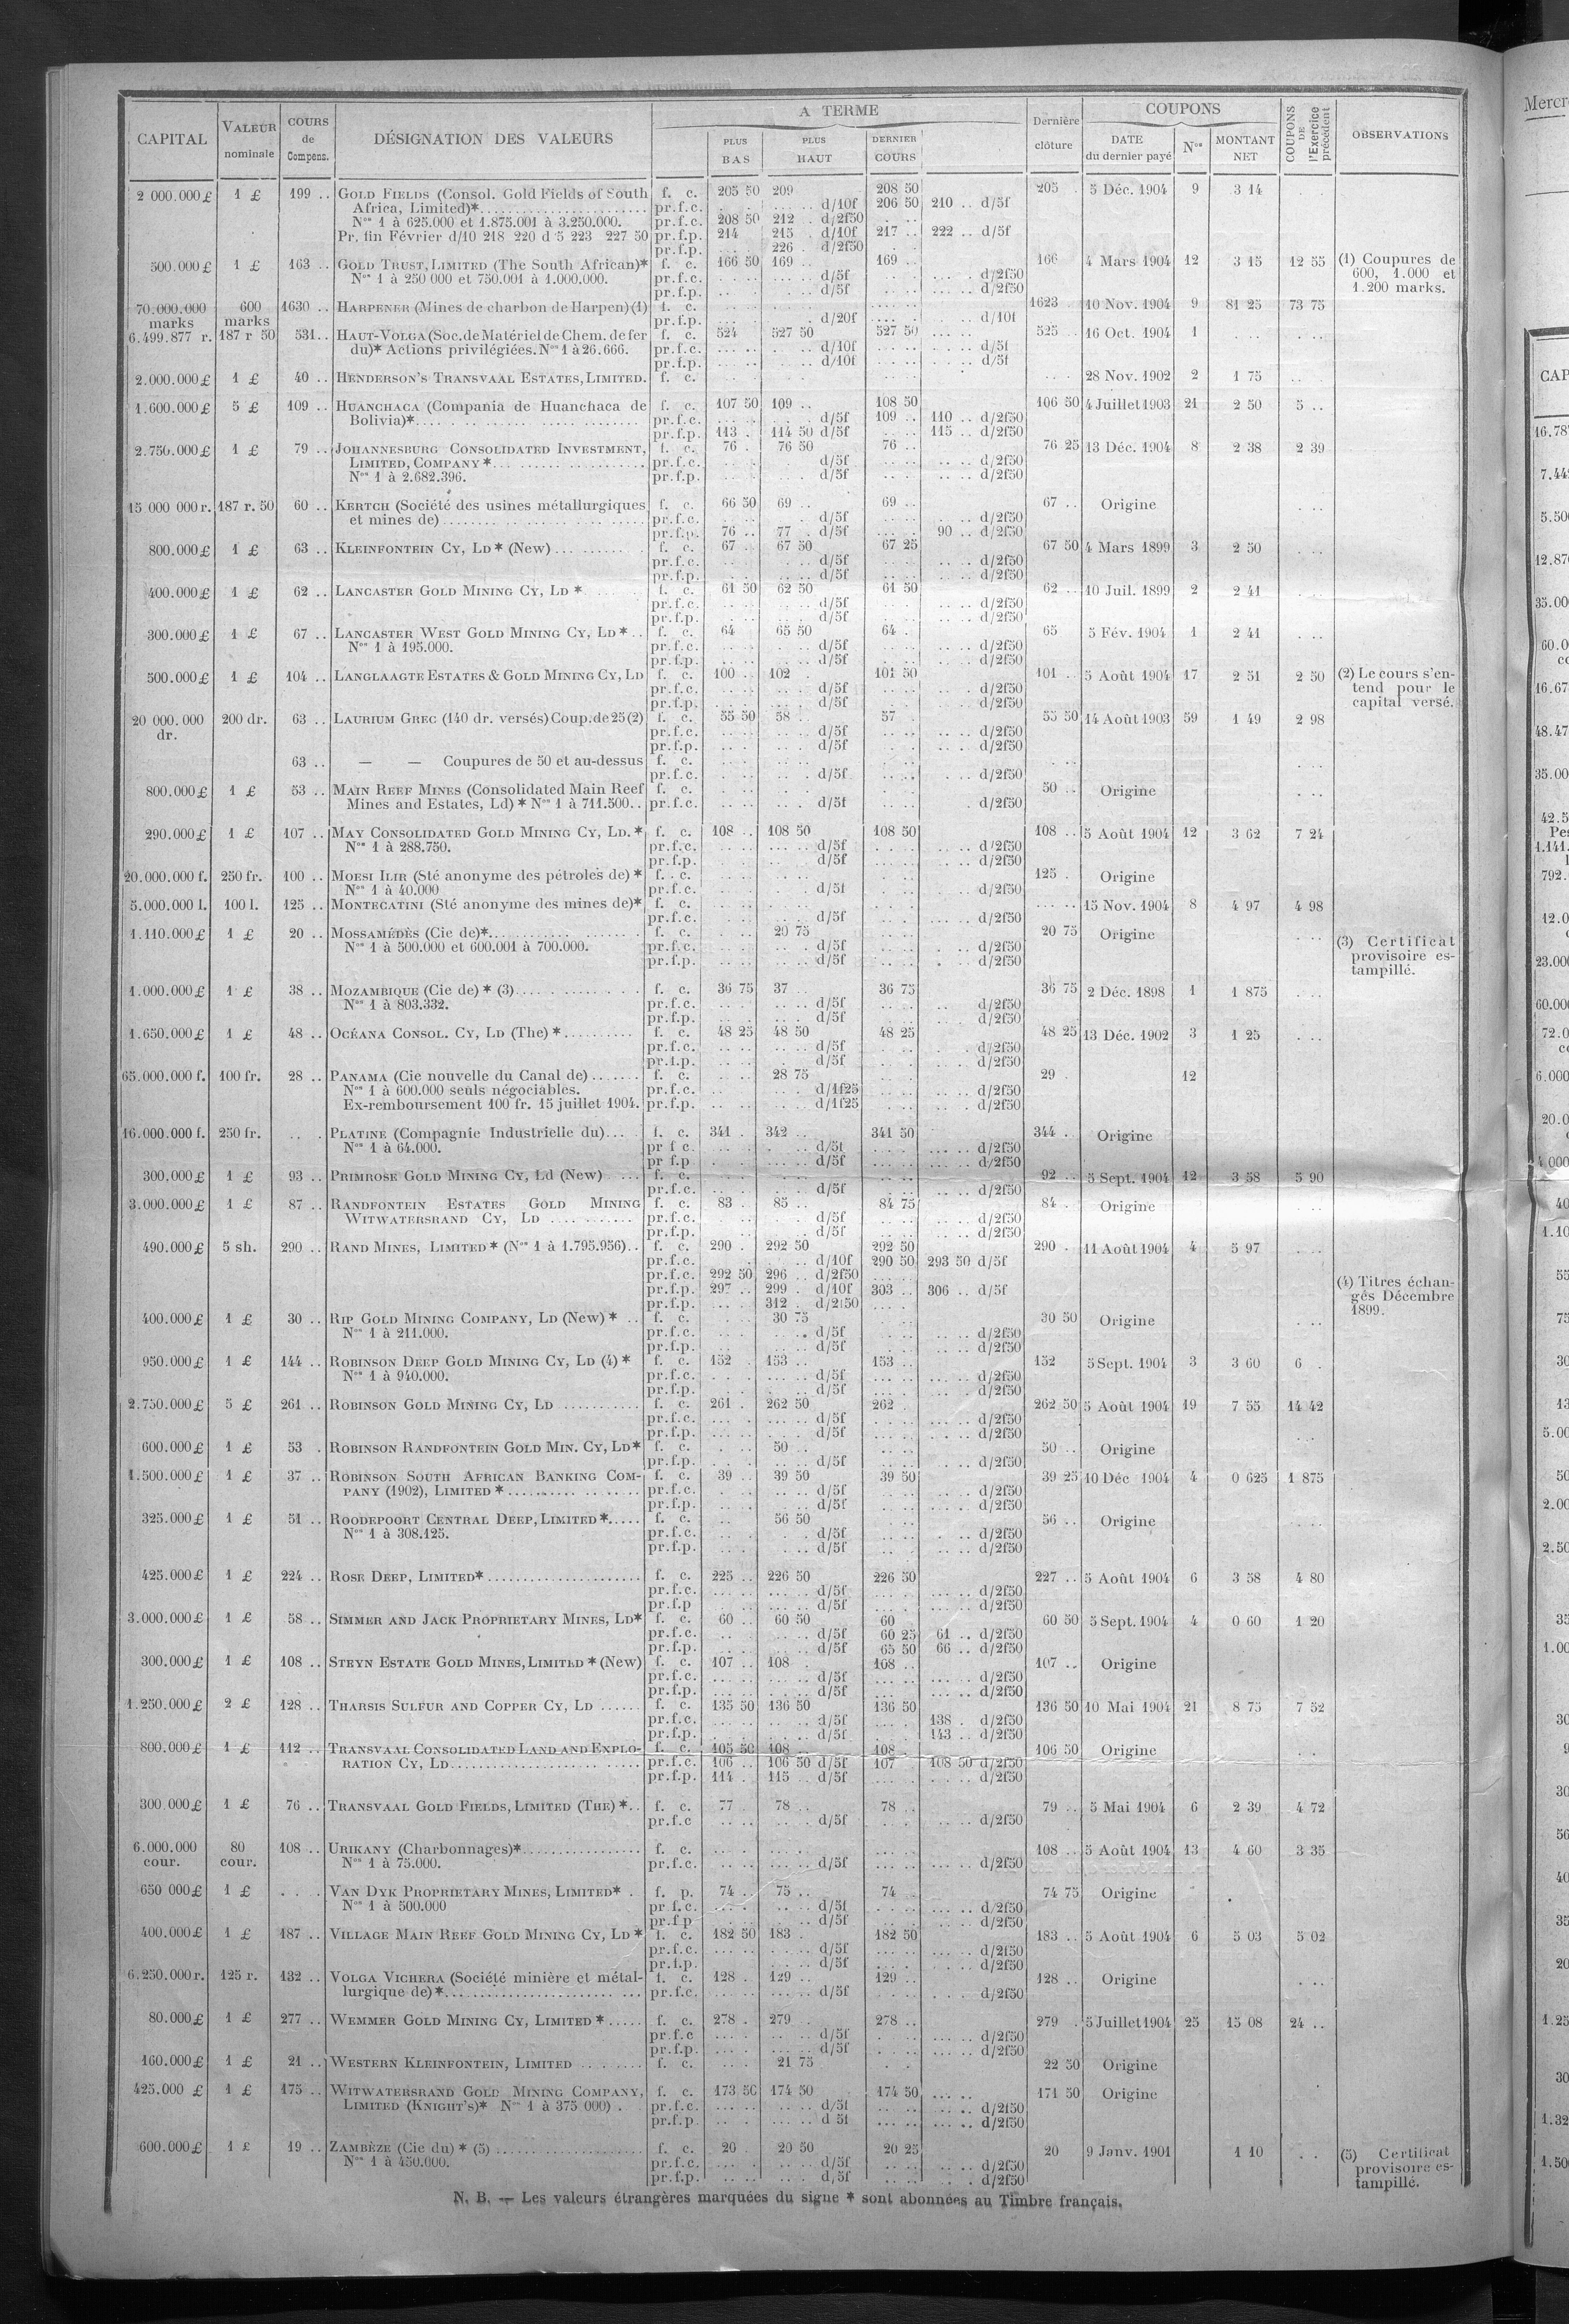 CAPITAL VALEUR nominale COURS de Compens. DÉSIGNATION DES VALEURS A TERME PLUS BAS PLUS HAUT DERNIER COURS Dernière clôture COUPONS DATE du dernier payé Nos MONTANT NET COUPONS DE l'Exercice précédent OBSERVATIONS
2 000.000 £ 1 £ 199 .. GOLD FIELDS (Consol. Gold Fields of South f. c. 205 50 209 208 50 205 . 5 Déc. 1904 9 3 14
Africa, Limited)* pr.f.c. d/10f 206 50 210 .. d/5f
Nos 1 à 625.000 et 1.875.001 à 3.250.000. pr.f.c. 208 50 212 . d/2f50
Pr. fin Février d/10 218 220 d 5 223 227 50 pr.f.p. 214 215 . d/10f 217 .. 222 .. d/5f
pr.f.p. 226 . d/2f50
500.000 £ 1 £ 163 .. GOLD TRUST, LIMITED (The South African)* f. c. 166 50 169 .. 169 .. 166 4 Mars 1904 12 3 15 12 55 (1) Coupures de
Nos 1 à 250 000 et 750.001 à 1.000.000. pr.f.c. d/5f d/2f50 600, 1.000 et
pr.f.p. d/5f d/2f50 1.200 marks.
70.000.000 600 1630 .. HARPENER (Mines de charbon de Harpen) (1) f. c. 1623 10 Nov. 1904 9 81 25 73 75
marks marks pr.f.p. d/20f d/10f
6.499.877 r. 187 r 50 531 .. HAUT-VOLGA (Soc. de Matériel de Chem. de fer f. c. 524 527 50 527 50 525 .. 16 Oct. 1904 1
du)* Actions privilégiées. Nos 1 à 26.666. pr.f.c. d/10f d/5f
pr.f.p. d/10f d/5f
2.000.000 £ 1 £ 40 .. HENDERSON'S TRANSVAAL ESTATES, LIMITED. f. c. 28 Nov. 1902 2 1 75
1.600.000 £ 5 £ 109 .. HUANCHACA (Compania de Huanchaca de f. c. 107 50 109 .. 108 50 106 50 4 Juillet 1903 21 2 50 5 ..
Bolivia)* pr.f.c. d/5f 109 .. 110 .. d/2f50
pr.f.p. 113 . 114 50 d/5f 115 .. d/2f50
2.750.000 £ 1 £ 79 .. JOHANNESBURG CONSOLIDATED INVESTMENT, f. c. 76 . 76 50 76 .. 76 25 13 Déc. 1904 8 2 38 2 39
LIMITED, COMPANY * pr.f.c. d/5f d/2f50
Nos 1 à 2.682.396. pr.f.p. d/5f d/2f50
15 000 000 r. 187 r. 50 60 .. KERTCH (Société des usines métallurgiques f. c. 66 50 69 .. 69 .. 67 .. Origine
et mines de) pr.f.c. d/5f d/2f50
pr.f.p. 76 .. 77 . d/5f 90 .. d/2f50
800.000 £ 1 £ 63 .. KLEINFONTEIN CY, LD * (New) f. c. 67 .. 67 50 67 25 67 50 4 Mars 1899 3 2 50
pr.f.c. d/5f d/2f50
pr.f.p. d/5f d/2f50
400.000 £ 1 £ 62 .. LANCASTER GOLD MINING CY, LD * f. c. 61 50 62 50 61 50 62 .. 10 Juil. 1899 2 2 41
pr.f.c. d/5f d/2f50
pr.f.p. d/5f d/2f50
300.000 £ 1 £ 67 .. LANCASTER WEST GOLD MINING CY, LD * f. c. 64 65 50 64 .. 65 5 Fév. 1904 1 2 41
Nos 1 à 195.000. pr.f.c. d/5f d/2f50
pr.f.p. d/5f d/2f50
500.000 £ 1 £ 104 .. LANGLAAGTE ESTATES & GOLD MINING CY, LD f. c. 100 .. 102 . 101 50 101 .. 5 Août 1904 17 2 51 2 50 (2) Le cours s'en-
pr.f.c. d/5f d/2f50 tend pour le
pr.f.p. d/5f d/2f50 capital versé.
20 000.000 200 dr. 63 .. LAURIUM GREC (140 dr. versés) Coup. de 25 (2) f. c. 55 50 58 .. 57 . 55 50 14 Août 1903 59 1 49 2 98
dr. pr.f.c. d/5f d/2f50
pr.f.p. d/5f d/2f50
63 .. — — Coupures de 50 et au-dessus f. c.
pr.f.c. d/5f d/2f50
800.000 £ 1 £ 53 .. MAIN REEF MINES (Consolidated Main Reef f. c. 50 .. Origine
Mines and Estates, Ld) * Nos 1 à 711.500.. pr.f.c. d/5f d/2f50
290.000 £ 1 £ 107 .. MAY CONSOLIDATED GOLD MINING CY, LD. * f. c. 108 .. 108 50 108 50 108 .. 5 Août 1904 12 3 62 7 24
Nos 1 à 288.750. pr.f.c. d/5f d/2f50
pr.f.p. d/5f d/2f50
20.000.000 f. 250 fr. 100 .. MOESI ILIR (Sté anonyme des pétroles de) * f. c. 125 . Origine
Nos 1 à 40.000 pr.f.c. d/5f d/2f50
5.000.000 l. 100 l. 125 .. MONTECATINI (Sté anonyme des mines de)* f. c. 15 Nov. 1904 8 4 97 4 98
pr.f.c. d/5f d/2f50
1.110.000 £ 1 £ 20 .. MOSSAMÉDÈS (Cie de)* f. c. 20 75 20 75 Origine (3) Certificat
Nos 1 à 500.000 et 600.001 à 700.000. pr.f.c. d/5f d/2f50 provisoire es-
pr.f.p. d/5f d/2f50 tampillé.
1.000.000 £ 1 £ 38 .. MOZAMBIQUE (Cie de) * (3) f. c. 36 75 37 36 75 36 75 2 Déc. 1898 1 1 875
Nos 1 à 803.332. pr.f.c. d/5f d/2f50
pr.f.p. d/5f d/2f50
1.650.000 £ 1 £ 48 .. OCÉANA CONSOL. CY, LD (The) * f. c. 48 25 48 50 48 25 48 25 13 Déc. 1902 3 1 25
pr.f.c. d/5f d/2f50
pr.f.p. d/5f d/2f50
65.000.000 f. 100 fr. 28 .. PANAMA (Cie nouvelle du Canal de) f. c. 28 75 29 . 12
Nos 1 à 600.000 seuls négociables. pr.f.c. d/1f25 d/2f50
Ex-remboursement 100 fr. 15 juillet 1904. pr.f.p. d/1f25 d/2f50
16.000.000 f. 250 fr. PLATINE (Compagnie Industrielle du) f. c. 341 . 342 .. 341 50 344 . Origine
Nos 1 à 64.000. pr f c. d/5f d/2f50
pr f.p d/5f d/2f50
300.000 £ 1 £ 93 .. PRIMROSE GOLD MINING CY, Ld (New) f. c. 92 .. 5 Sept. 1904 12 3 58 5 90
pr.f.c. d/5f d/2f50
3.000.000 £ 1 £ 87 .. RANDFONTEIN ESTATES GOLD MINING f. c. 83 . 85 .. 84 75 84 . Origine
WITWATERSRAND CY, LD pr.f.c. d/5f d/2f50
pr.f.p. d/5f d/2f50
490.000 £ 5 sh. 290 .. RAND MINES, LIMITED * (Nos 1 à 1.795.956) f. c. 290 . 292 50 292 50 290 . 11 Août 1904 4 5 97
pr.f.c. d/10f 290 50 293 50 d/5f
pr.f.c. 292 50 296 .. d/2f50
pr.f.p. 297 .. 299 . d/10f 303 .. 306 .. d/5f (4) Titres échan-
pr.f.p. 312 . d/2f50 gés Décembre
400.000 £ 1 £ 30 .. RIP GOLD MINING COMPANY, LD (New) * f. c. 30 75 30 50 Origine 1899.
Nos 1 à 211.000. pr.f.c. d/5f d/2f50
pr.f.p. d/5f d/2f50
950.000 £ 1 £ 144 .. ROBINSON DEEP GOLD MINING CY, LD (4) * f. c. 152 . 153 .. 153 .. 152 5 Sept. 1904 3 3 60 6 .
Nos 1 à 940.000. pr.f.c. d/5f d/2f50
pr.f.p. d/5f d/2f50
2.750.000 £ 5 £ 261 .. ROBINSON GOLD MINING CY, LD f. c. 261 . 262 50 262 . 262 50 5 Août 1904 19 7 55 14 42
pr.f.c. d/5f d/2f50
pr.f.p. d/5f d/2f50
600.000 £ 1 £ 53 . ROBINSON RANDFONTEIN GOLD MIN. CY, LD* f. c. 50 .. 50 .. Origine
pr.f.p. d/5f d/2f50
1.500.000 £ 1 £ 37 .. ROBINSON SOUTH AFRICAN BANKING COM- f. c. 39 .. 39 50 39 50 39 25 10 Déc 1904 4 0 625 1 875
PANY (1902), LIMITED * pr.f.c. d/5f d/2f50
pr.f.p. d/5f d/2f50
325.000 £ 1 £ 51 .. ROODEPOORT CENTRAL DEEP, LIMITED * f. c. 56 50 56 .. Origine
Nos 1 à 308.125. pr.f.c. d/5f d/2f50
pr.f.p. d/5f d/2f50
425.000 £ 1 £ 224 .. ROSE DEEP, LIMITED* f. c. 225 .. 226 50 226 50 227 .. 5 Août 1904 6 3 58 4 80
pr.f.c. d/5f d/2f50
pr.f.p d/5f d/2f50
3.000.000 £ 1 £ 58 .. SIMMER AND JACK PROPRIETARY MINES, LD* f. c. 60 .. 60 50 60 60 50 5 Sept. 1904 4 0 60 1 20
pr.f.c. d/5f 60 25 61 .. d/2f50
pr.f.p. d/5f 65 50 66 .. d/2f50
300.000 £ 1 £ 108 .. STEYN ESTATE GOLD MINES, LIMITED * (New) f. c. 107 .. 108 . 108 .. 107 .. Origine
pr.f.c. d/5f d/2f50
pr.f.p. d/5f d/2f50
1.250.000 £ 2 £ 128 .. THARSIS SULFUR AND COPPER CY, LD f. c. 135 50 136 50 136 50 136 50 10 Mai 1904 21 8 75 7 52
pr.f.c. d/5f 138 . d/2f50
pr.f.p. d/5f 143 .. d/2f50
800.000 £ 1 £ 112 .. TRANSVAAL CONSOLIDATED LAND AND EXPLO- f. c. 105 50 108 .. 108 . 106 50 Origine
RATION CY, LD pr.f.c. 106 .. 106 50 d/5f 107 108 50 d/2f50
pr.f.p. 114 . 115 .. d/5f d/2f50
300 000 £ 1 £ 76 .. TRANSVAAL GOLD FIELDS, LIMITED (THE) * f. c. 77 . 78 .. 78 .. 79 .. 5 Mai 1904 6 2 39 4 72
pr.f.c d/5f d/2f50
6.000.000 80 108 .. URIKANY (Charbonnages)* f. c. 108 .. 5 Août 1904 13 4 60 3 35
cour. cour. Nos 1 à 75.000. pr.f.c. d/5f d/2f50
650 000 £ 1 £ VAN DYK PROPRIETARY MINES, LIMITED* . f. p. 74 .. 75 .. 74 . 74 75 Origine
Nos 1 à 500.000 pr f.c. d/5f d/2f50
pr.f.p d/5f d/2f50
400.000 £ 1 £ 187 .. VILLAGE MAIN REEF GOLD MINING CY, LD * f. c. 182 50 183 . 182 50 183 .. 5 Août 1904 6 5 03 5 02
pr.f.c. d/5f d/2f50
pr.f.p. d/5f d/2f50
6.250.000 r. 125 r. 132 .. VOLGA VICHERA (Société minière et métal- f. c. 128 . 129 .. 129 .. 128 .. Origine
lurgique de) * pr.f.c. d/5f d/2f50
80.000 £ 1 £ 277 .. WEMMER GOLD MINING CY, LIMITED * f. c. 278 . 279 . 278 .. 279 . 5 Juillet 1904 25 15 08 24 ..
pr.f.c d/5f d/2f50
pr.f.p. d/5f d/2f50
160.000 £ 1 £ 21 .. WESTERN KLEINFONTEIN, LIMITED f. c. 21 75 22 50 Origine
425.000 £ 1 £ 175 .. WITWATERSRAND GOLD MINING COMPANY, f. c. 173 50 174 50 174 50 171 50 Origine
LIMITED (KNIGHT'S)* Nos 1 à 375 000) . pr.f.c. d/5f d/2f50
pr.f.p. d 5f d/2f50
600.000 £ 1 £ 19 .. ZAMBÈZE (Cie du) * (5) f. c. 20 . 20 50 20 25 20 9 Janv. 1901 1 10 (5) Certificat
Nos 1 à 450.000. pr.f.c. d/5f d/2f50 provisoire es-
pr.f.p. d/5f d/2f50 tampillé.
N. B. — Les valeurs étrangères marquées du signe * sont abonnées au Timbre français.
Mercr
CAP